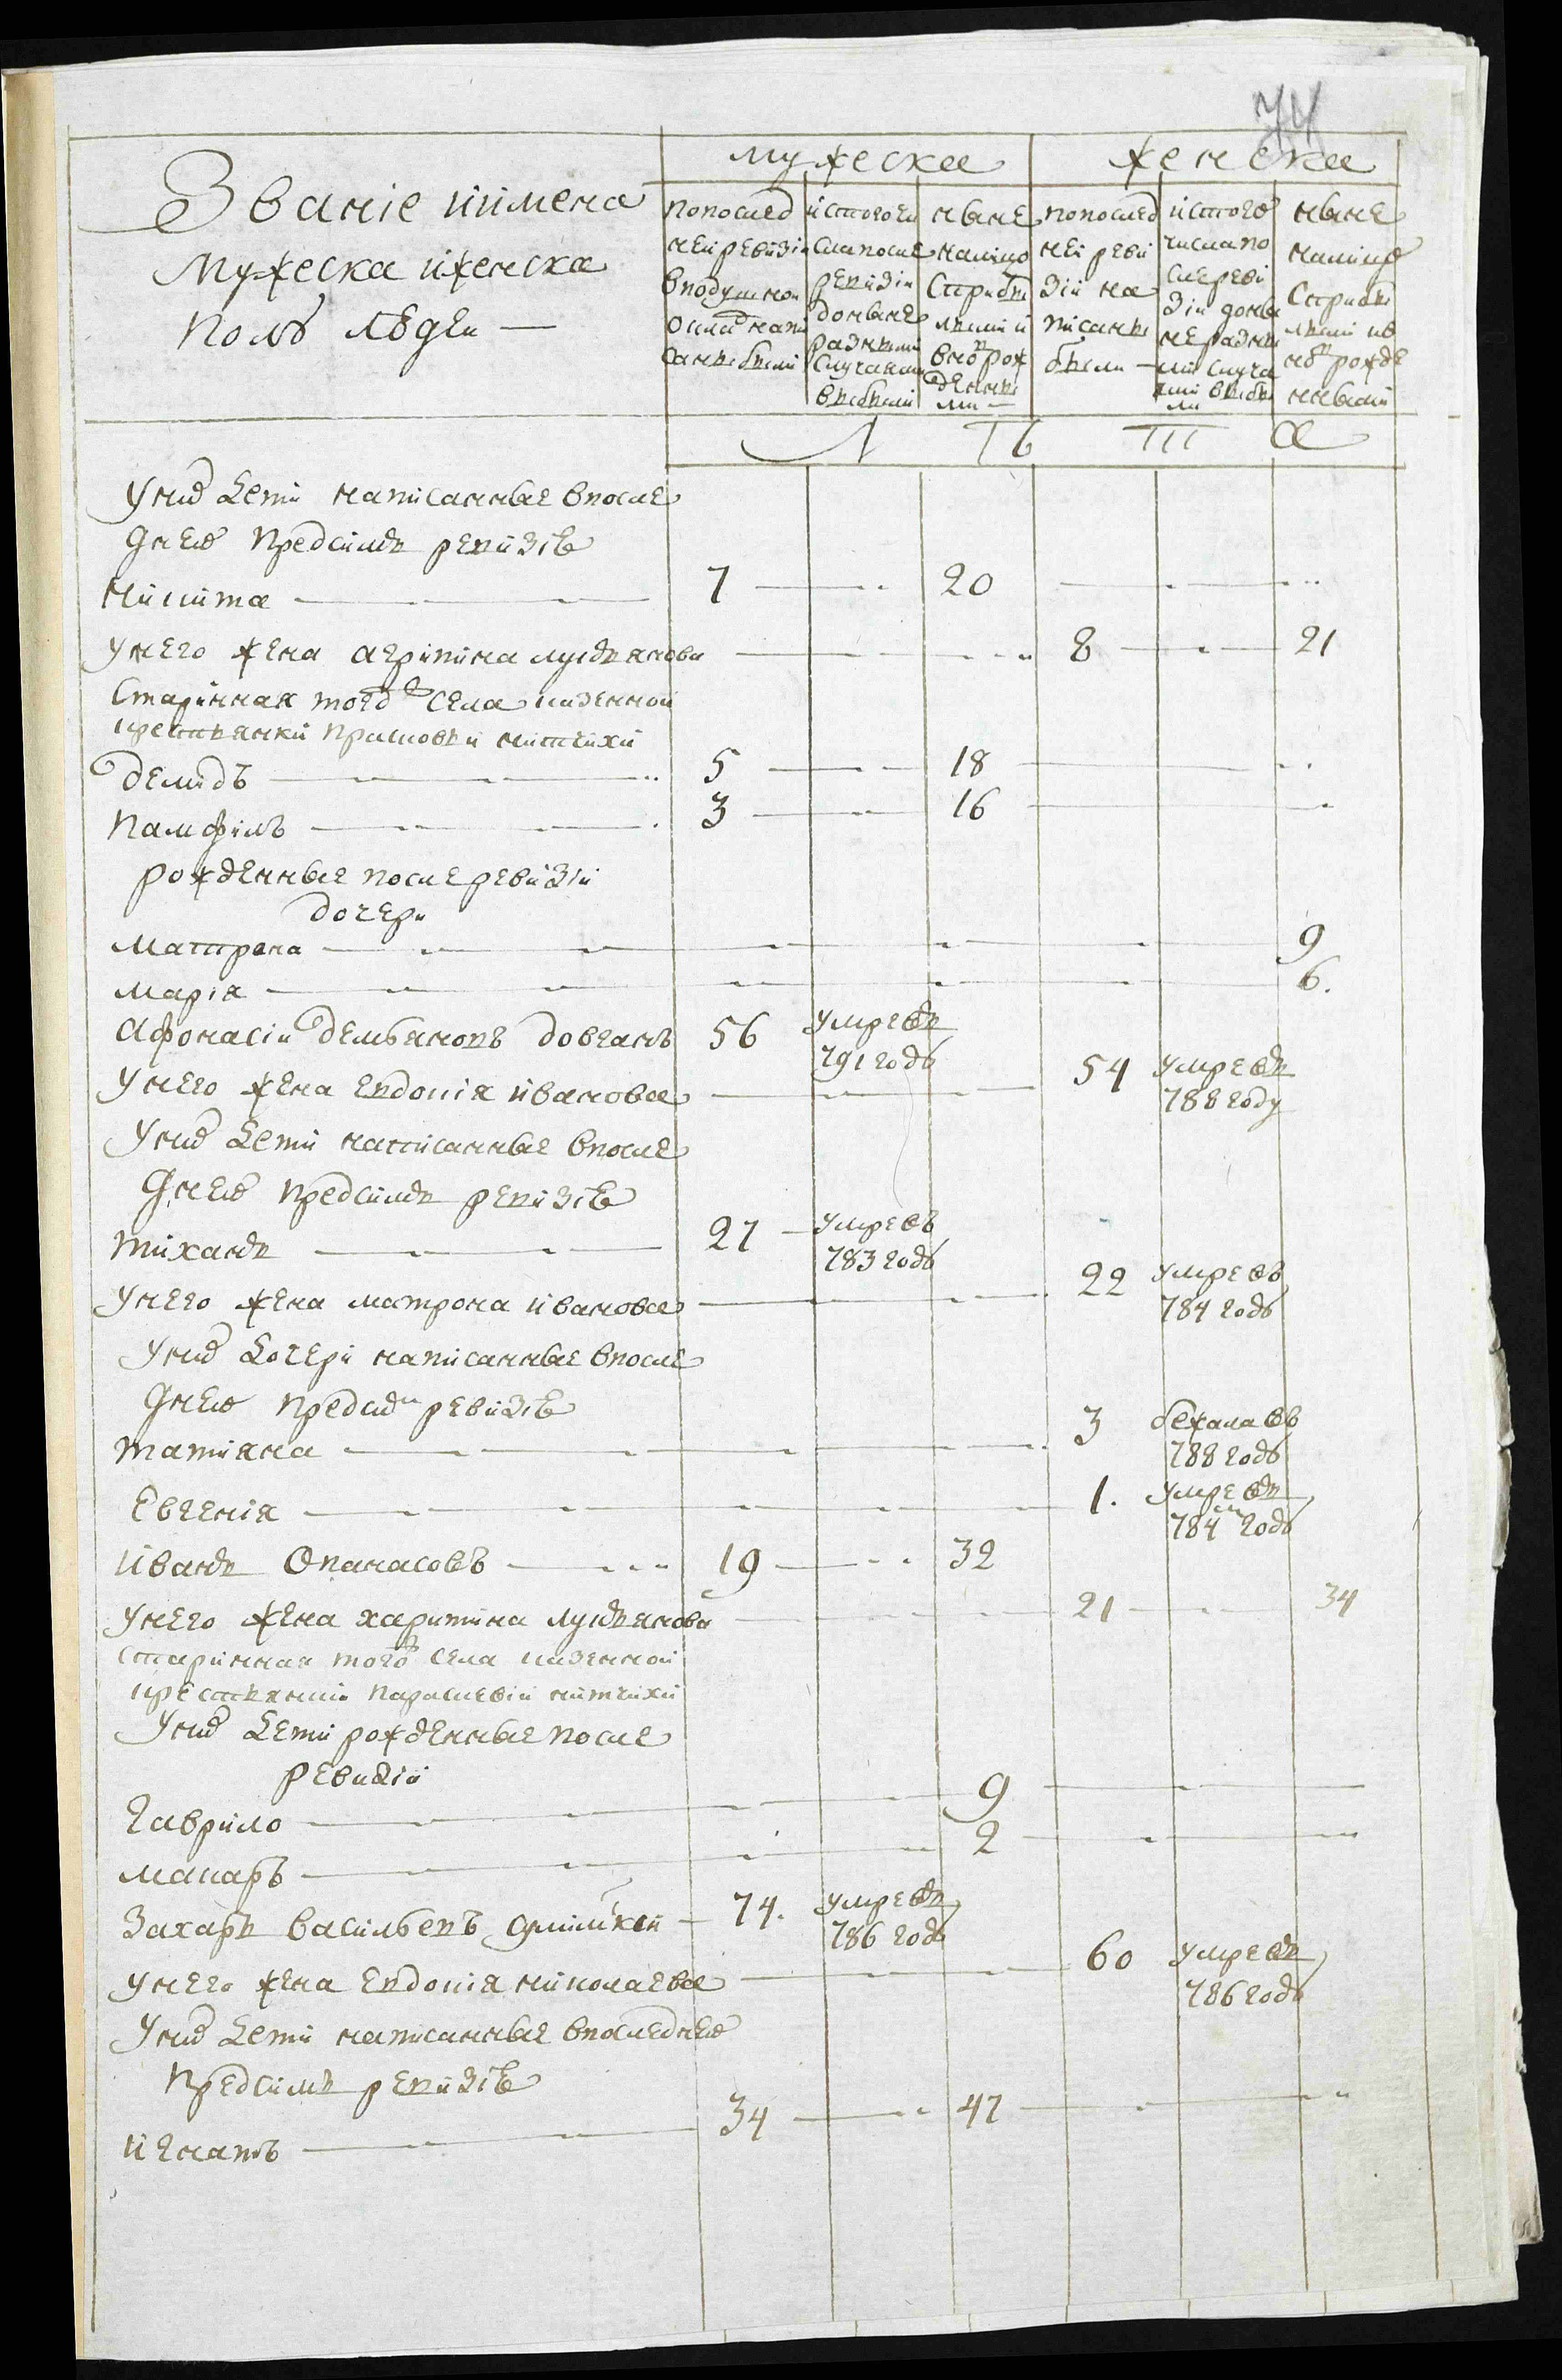 74
Званіе иимена
Мужеска иженска
Полу людеи —
мужеска
женска
попослед
неи ревизіи
вподушном
окладе напи
саны были
истого чи
сла после
ревизіи
доныне
разными
случаями
выбыли
ныне
налицо
Сприбы
лыми и
вновь рож
денны
ми —
попослед
неи реви
зіи на
писаны
были —
истого
числа по
сле реви
зіи доны
не разны
ми случа
ями выбы
ли
ныне
налицо
Сприбы
лыми ив
новь рожде
нными
Л Ѣ Т А
Уних Дети написанные впосле
днеи предсимъ ревизіи
Никита 7 20
Унего жена агрипина лукъянова 8 21
Старинная тогож села казенной
крестьянки Прасковьи никитихи
Демидъ 5 18
Памфилъ 3 16
рожденные после ревизіи
дочери
Матрона 9
Марія 6.
Афонасіи Демьяновъ довганъ 56 умревъ
791 годѣ
Унего жена Евдокія ивановa 54 умревъ
788 году
Уних Дети написанные впосле
днеи предсимъ ревизіи
Тиханъ 27 умревъ
783 годѣ
Унего жена матрона иванова 22 умревъ
784 годѣ
Уних Дочери написанные впосле
днеи предсимъ ревизіи
Татияна 3 бежала въ
788 годѣ
Евгенія 1. умревъ
784м годѣ
Иванъ Опанасовъ 19 32
Унего жена харитина лукъянова 21 34
старинная тогож села казенной
крестьянки Параскевіи
Уних Дети рожденные после
ревизіи
Гаврило 9
Макаръ 2
Захаръ Васильевъ 74. умревъ
786 годѣ
Унего жена Евдокія николаева 60 умревъ
786 годѣ
Уних Дети написанные впоследнеи
предсимъ ревизіи
Игнатъ 34 47